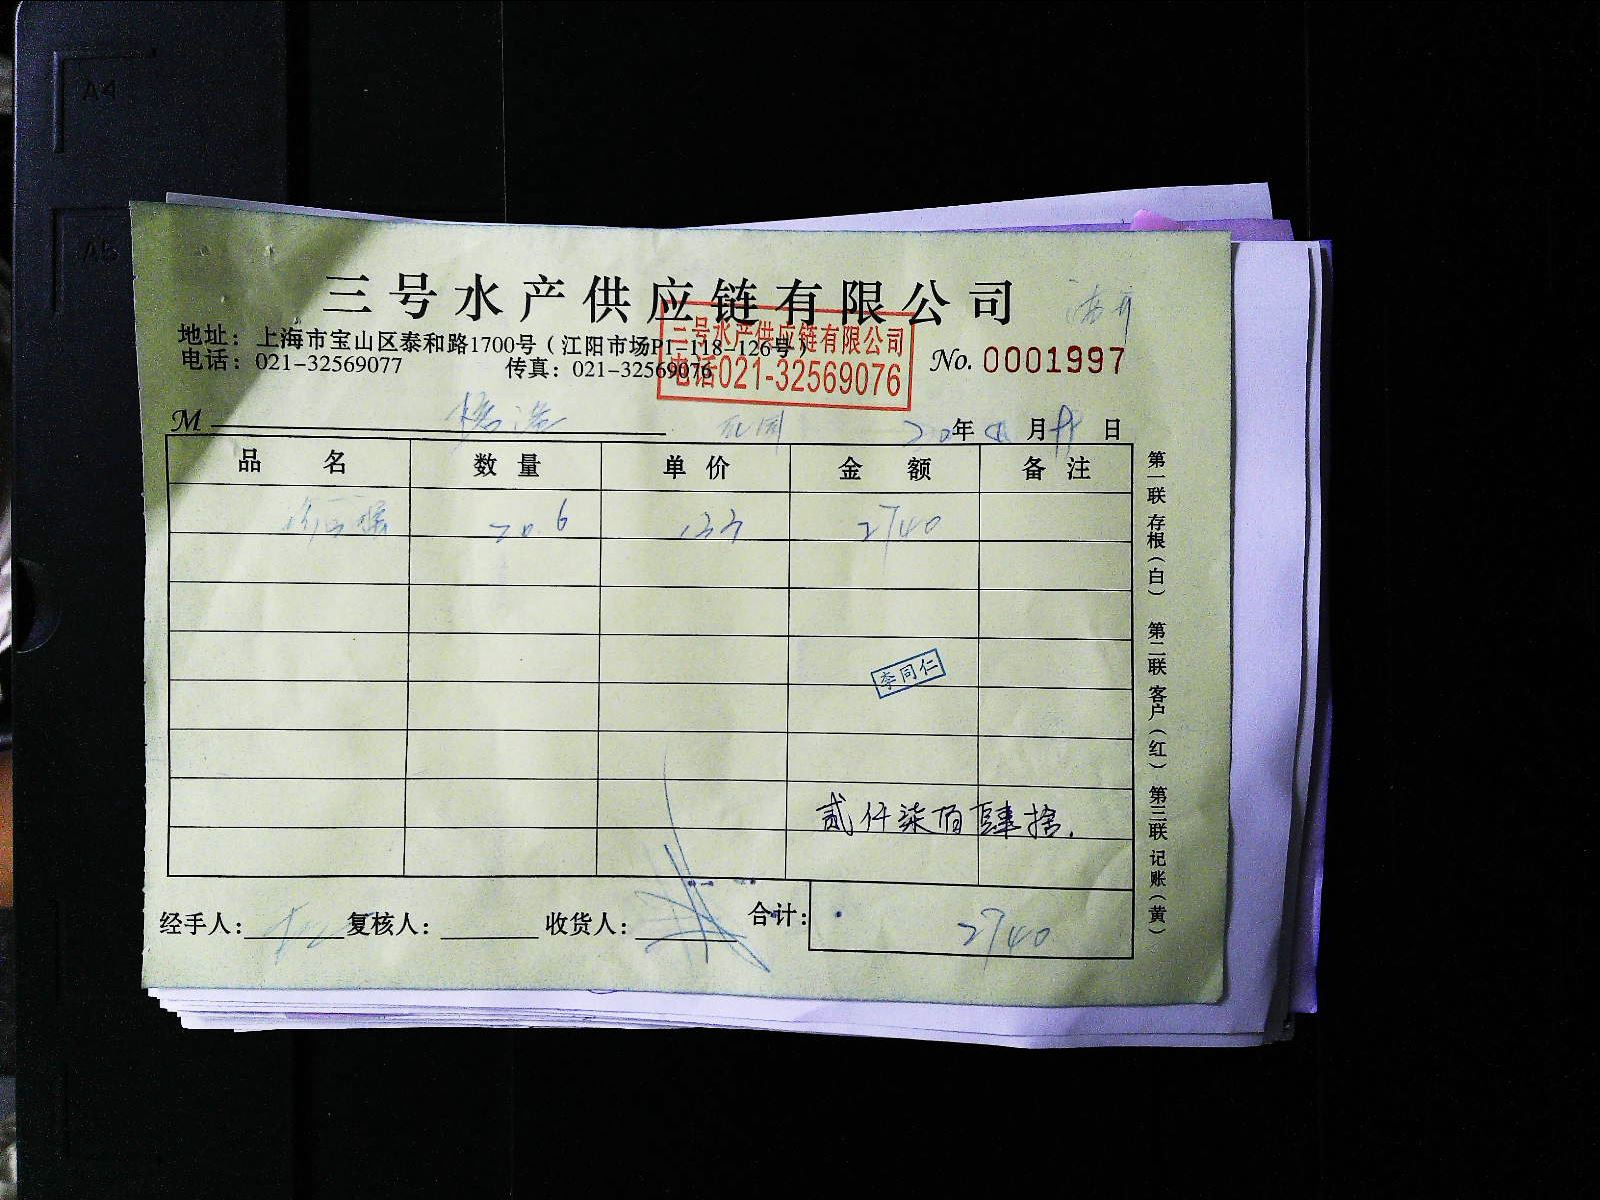 三号水产供应链有限公司
地址：上海市宝山区泰和路1700号（江阳市场P1-118-126号）
电话：021-32569077 传真：021-32569076
三号水产供应链有限公司
电话021-32569076
No. 0001997
M 年 月 日
品名 数量 单价 金额 备注
20.6 133 2740
李同仁
贰仟柒佰肆拾.
经手人： 复核人： 收货人： 合计： 2740
第一联 存根（白） 第二联 客户（红） 第三联 记账（黄）